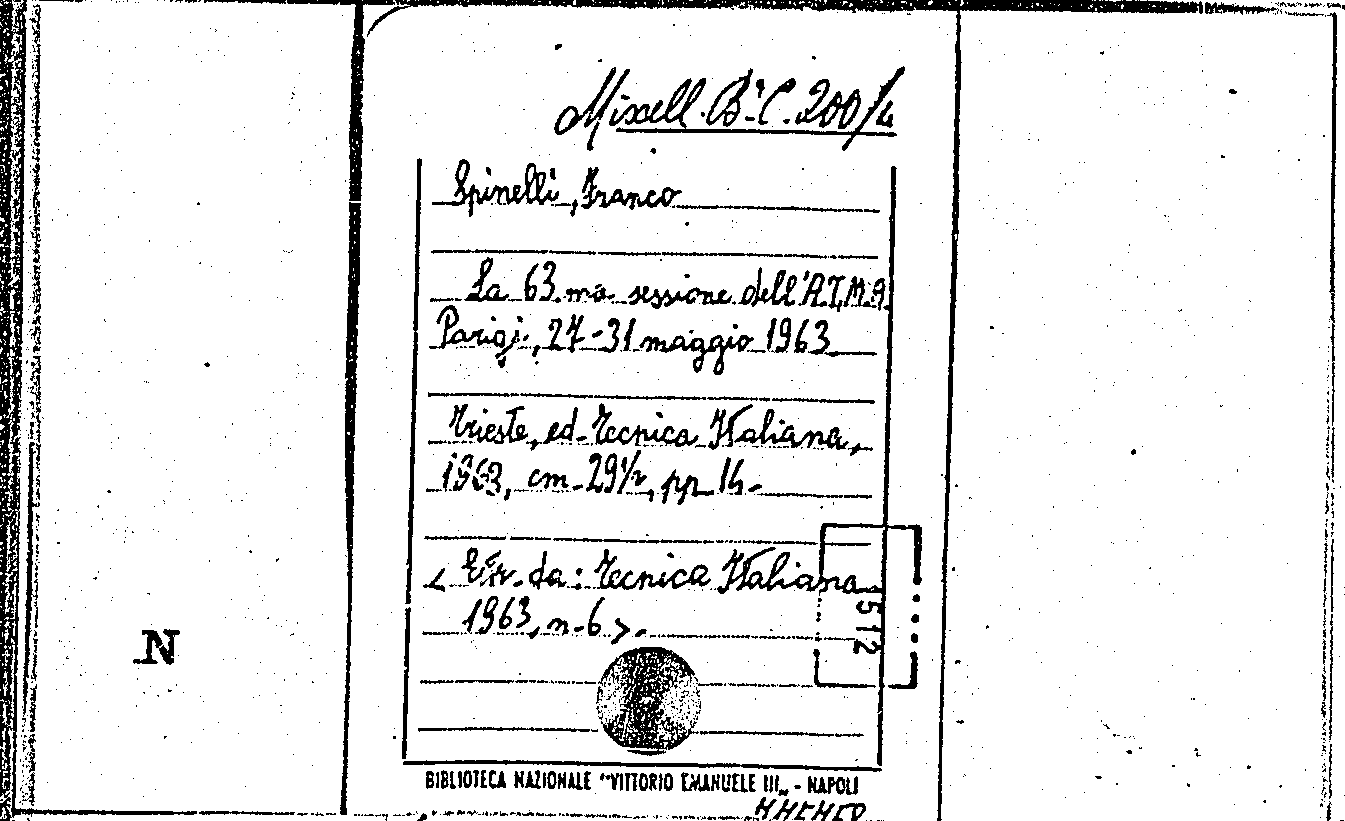 Miscell. Bª C. 200/4
Spinelli, Franco
La 63.ma sessione dell'A.T.M.A.
Parigi, 27-31 maggio 1963
Trieste, ed. Tecnica Italiana,
1963, cm. 29½, pp. 14.
< Estr. da: Tecnica Italiana
1963, n. 6 >.
512
N
BIBLIOTECA NAZIONALE "VITTORIO EMANUELE III„ - NAPOLI